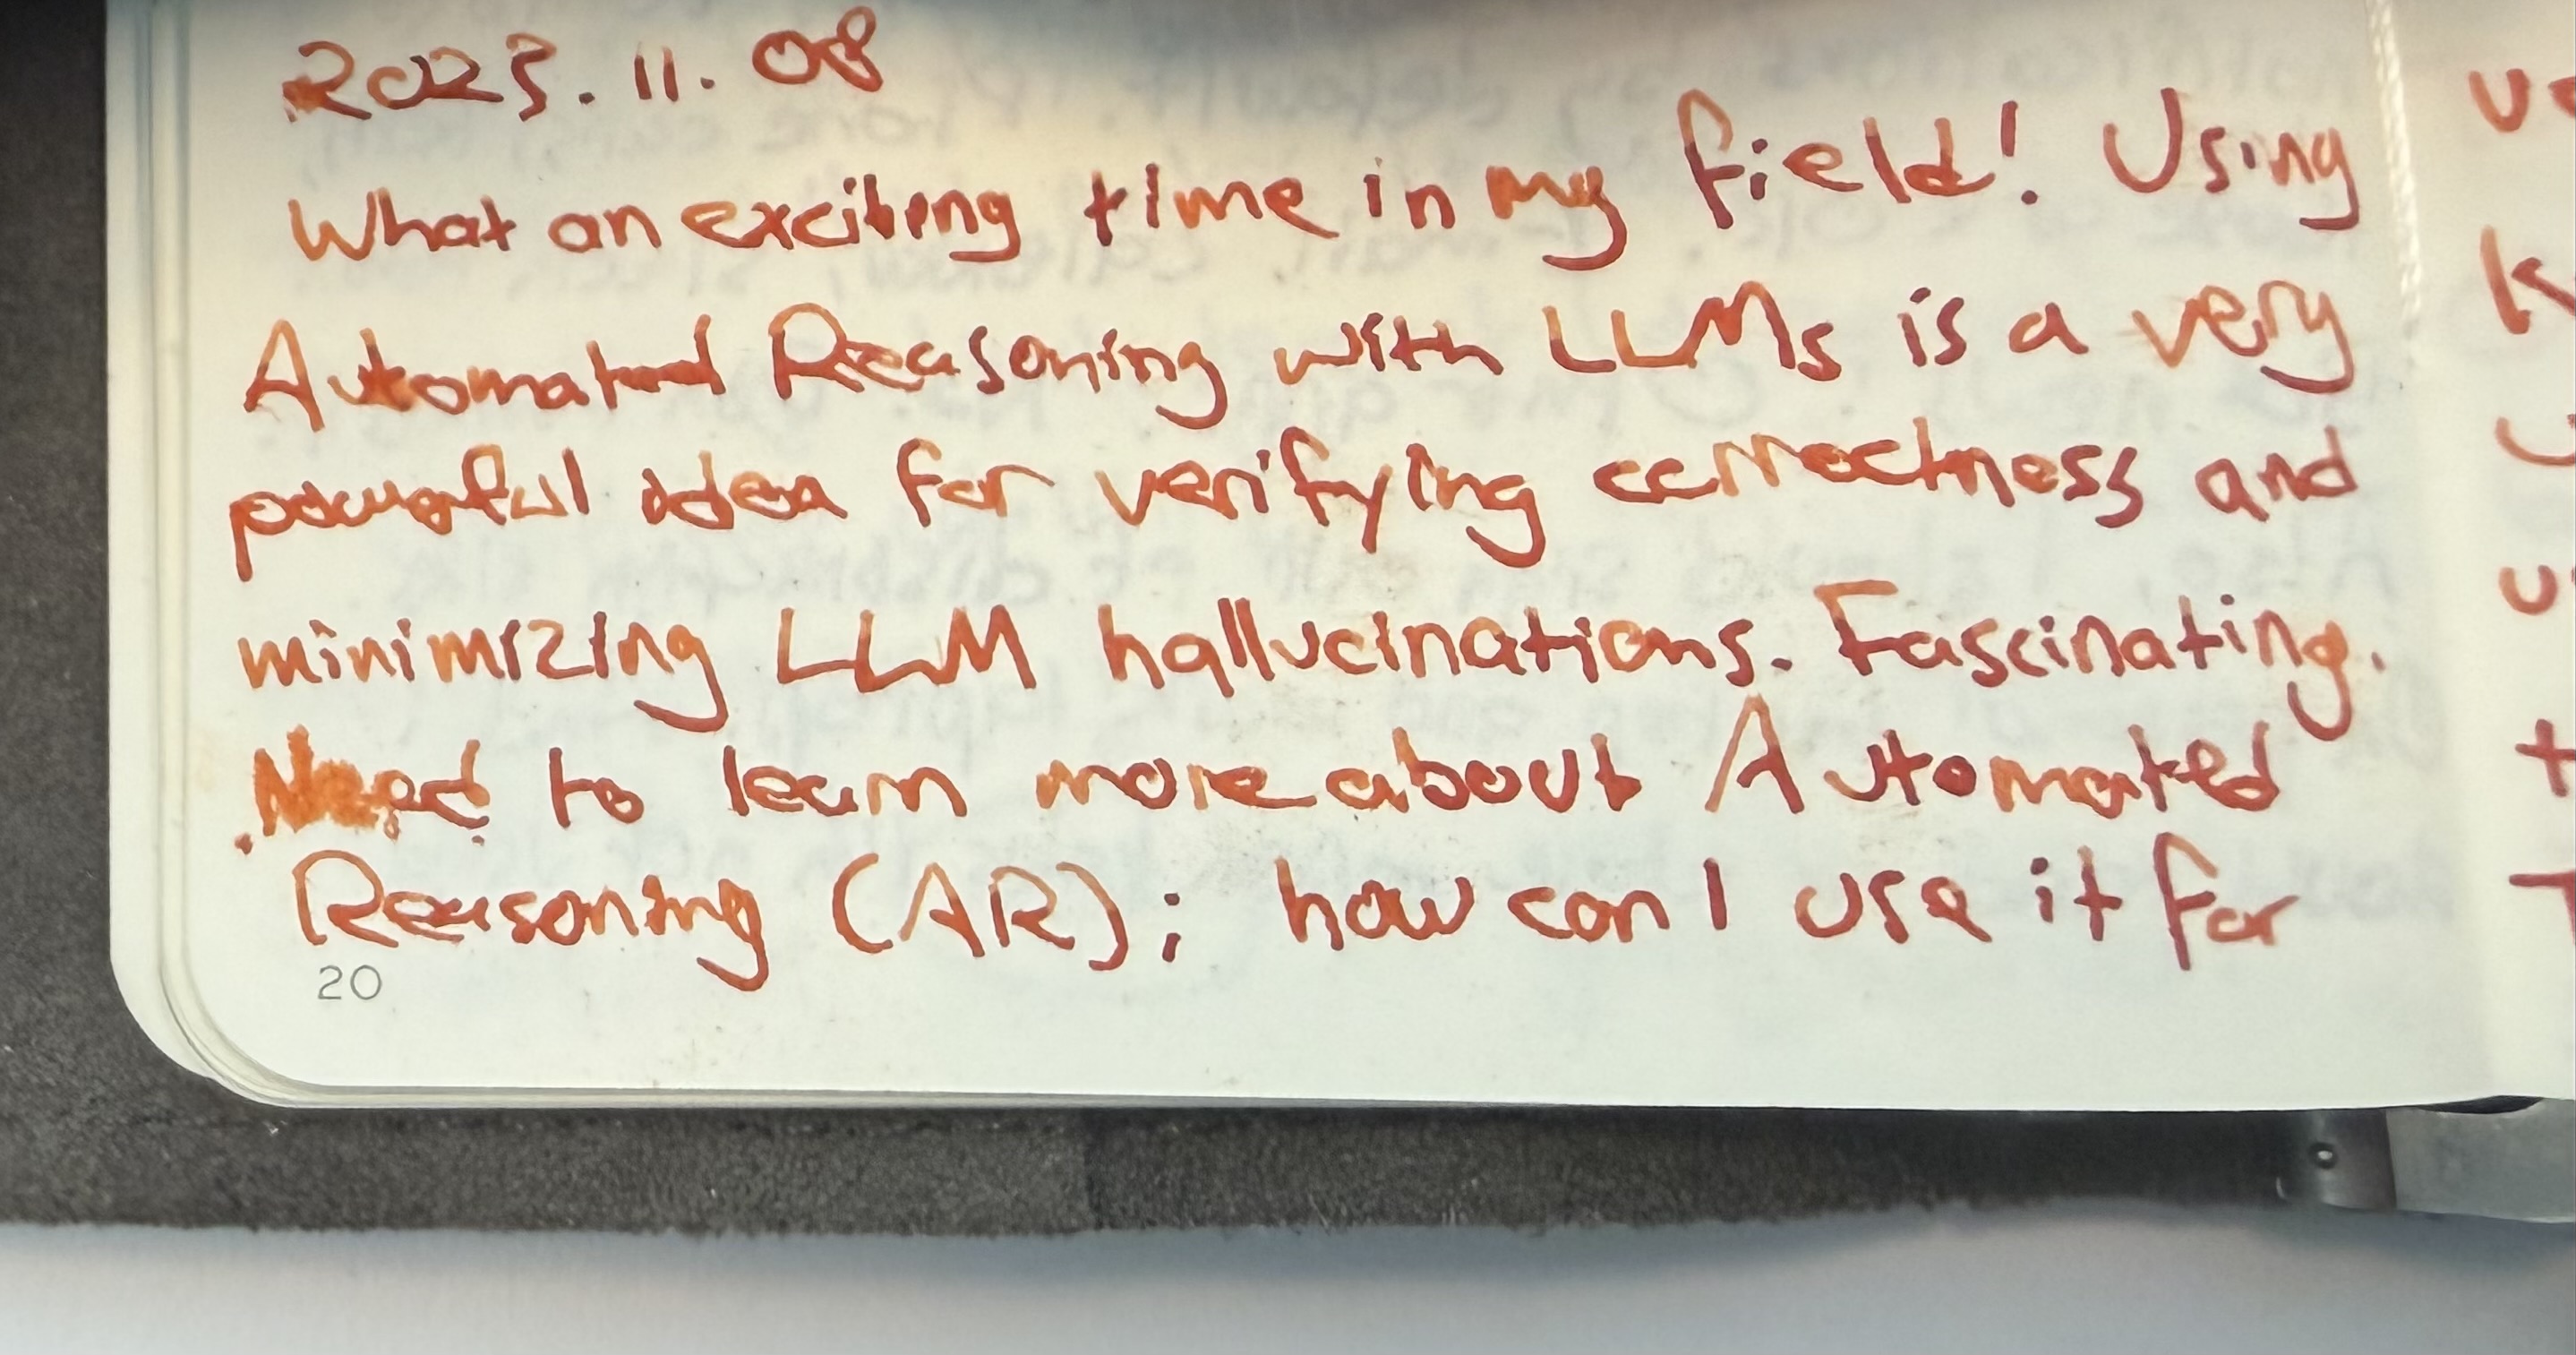 2025.11.08
What an exciting time in my field! Using
Automated Reasoning with LLMs is a very
powerful idea for verifying correctness and
minimizing LLM hallucinations. Fascinating.
Need to learn more about Automated
Reasoning (AR); how can I use it for
20